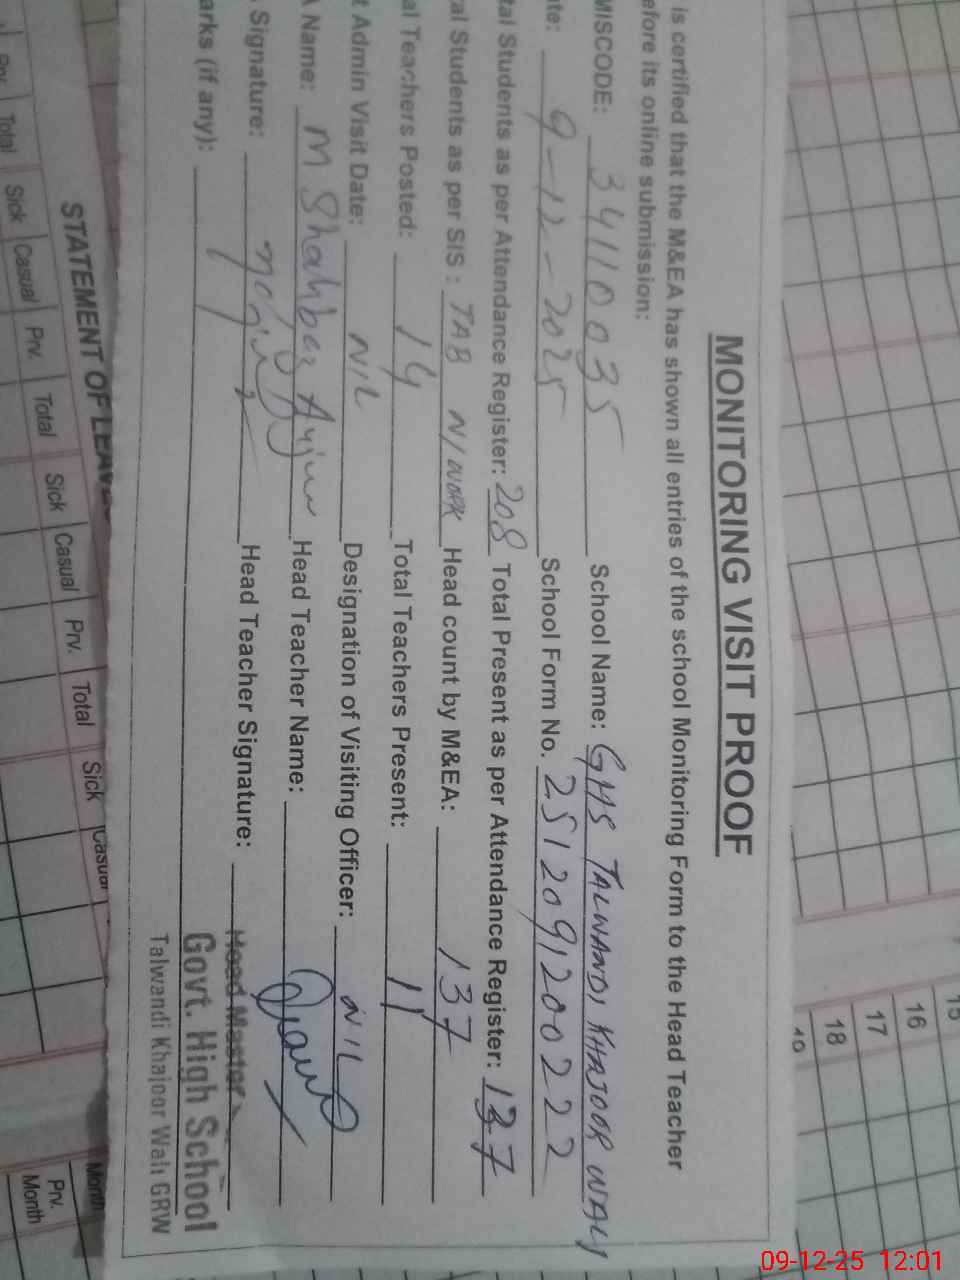 MONITORING VISIT PROOF
is certified that the M&EA has shown all entries of the school Monitoring Form to the Head Teacher
efore its online submission:
MISCODE: 34110035 School Name: GHS TALWANDI KHAJOOR WALI
ate: 9-12-2025 School Form No. 251209120022
tal Students as per Attendance Register: 208 Total Present as per Attendance Register: 137
ral Students as per SIS : TAB N/WORK Head count by M&EA: 137
al Teachers Posted: 14 Total Teachers Present: 11
t Admin Visit Date: NIL Designation of Visiting Officer: NIL
A Name: M Shahbaz Anjum Head Teacher Name:
Signature: Head Teacher Signature:
arks (if any):
Head Master
Govt. High School
Talwandi Khajoor Wali GRW
STATEMENT OF LEAVE
Prv. Total Sick Casual Prv. Total Sick Casual Prv. Total Sick Casual
Month
Prv. Month
15
16
17
18
19
09-12-25 12:01